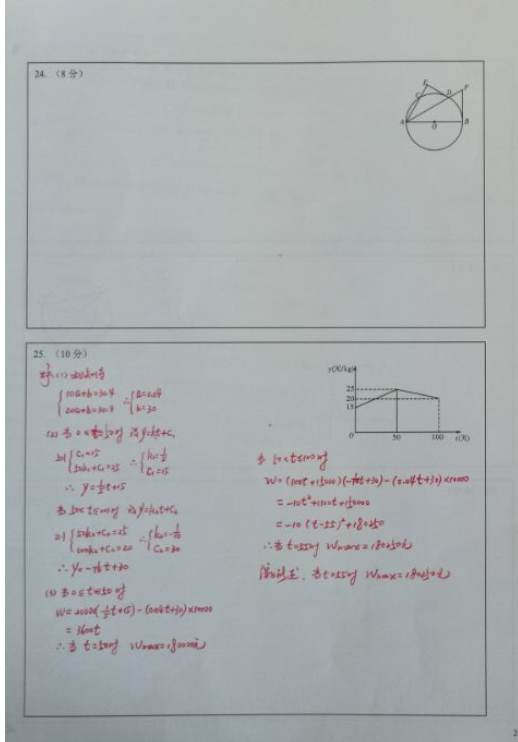 24. （8 分）
E
C
D
F
A
O
B
25. （10 分）
10a+b=30.4
20a+b=30.8
∴
a=0.04
b=30
y(元/kg)
25
20
15
O
50
100
t(天)
(2) 当 0≤t≤50时 设y=k₁t+C₁
C₁=15
50k₁+C₁=25
∴
k₁=1/5
C₁=15
∴ y=1/5t+15
当 50<t≤100时 设y=k₂t+C₂
50k₂+C₂=25
100k₂+C₂=20
∴
k₂=-1/10
C₂=30
∴ y=-1/10t+30
(3) 当 0≤t≤50时
W=20000(1/5t+15)-(0.04t+30)×10000
=3600t
∴当 t=50时 Wmax=180000元
当 50<t≤100时
W=(100t+15000)(-1/10t+30)-(0.04t+30)×10000
=-10t²+1100t+150000
=-10(t-55)²+180250
∴当t=55时 Wmax=180250元
当t=55时 Wmax=180250元
2